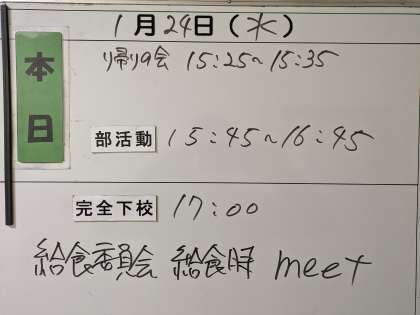 1月24日(水)
本日
帰りの会 15:25~15:35
部活動 15:45~16:45
完全下校 17:00
給食委員会 給食時 meet